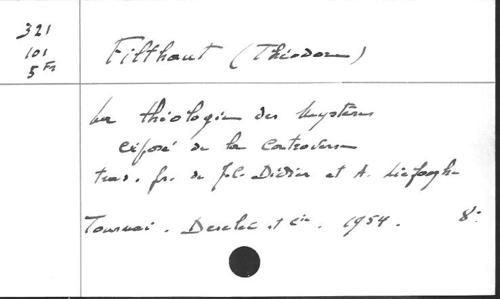 321
101
5 Fr
Filthaut (Théodore)
La théologie des Mystères
exposé de la Controverse
trad. fr. de J.C. Didier et A. Liefooghe
Tournai. Desclée et Cie. 1954. 8°